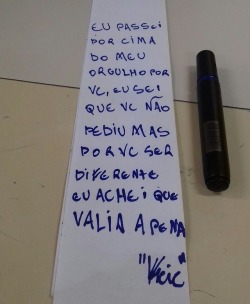 EU PASSEI
POR CIMA
DO MEU
ORGULHO POR
VC, EU SEI
QUE VC NÃO
PEDIU MAS
POR VC SER
DIFERENTE
EU ACHEI QUE
VALIA A PENA